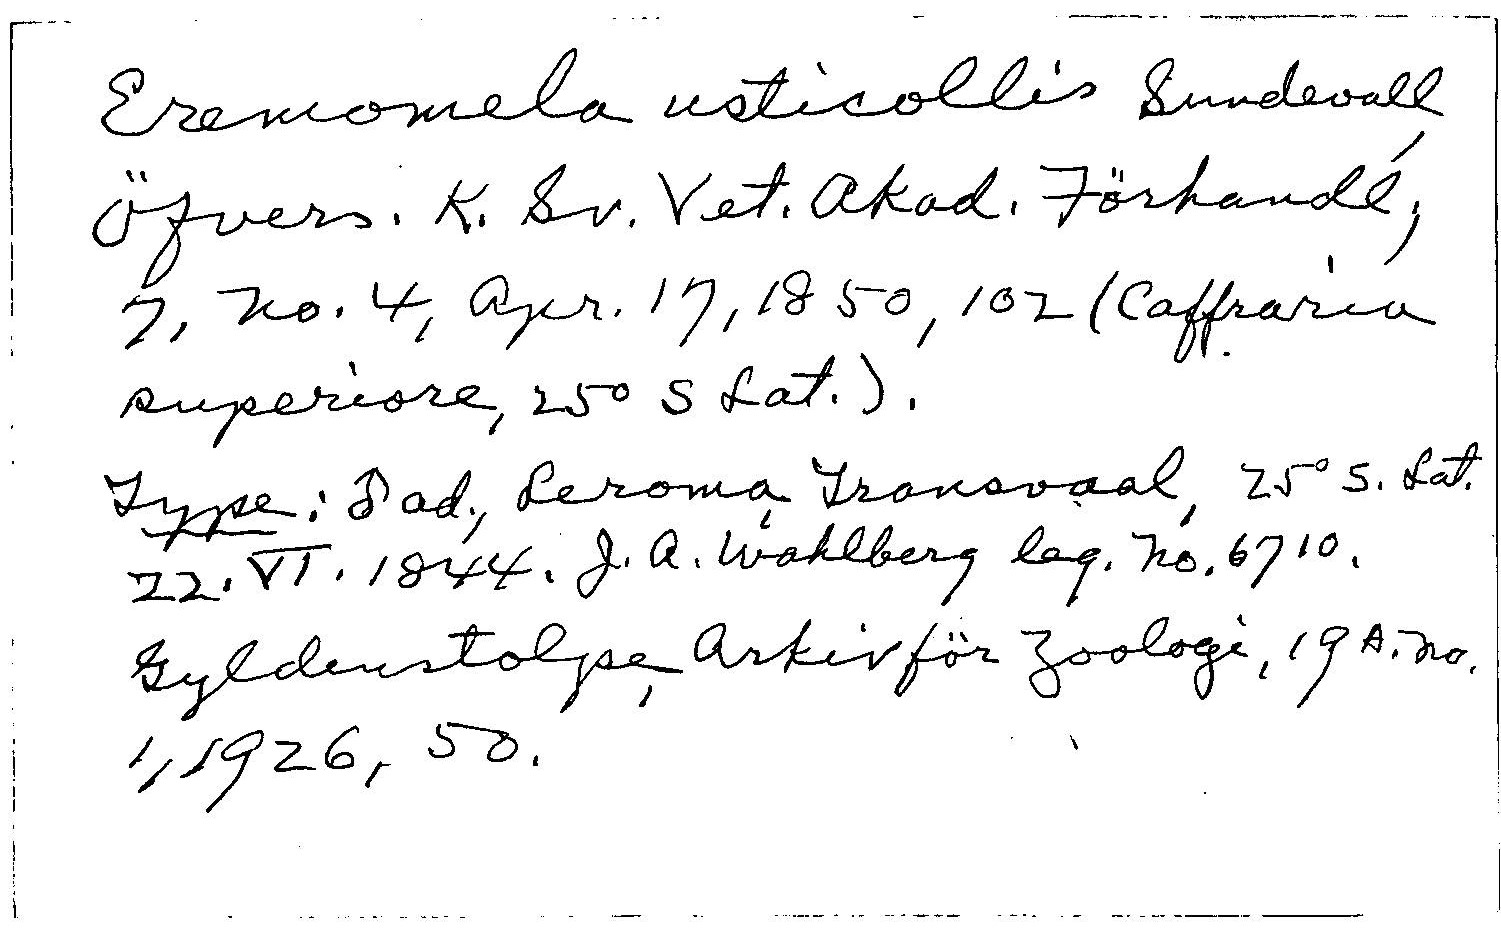 Eremomela usticollis Sundevall,
Öfvers. K. Sv. Vet. Akad. Förhandl,
7, no. 4, Apr. 17, 1850, 102 (Caffraria
superiore, 25° S Lat.).
Type: ♂ ad., Leroma, Transvaal, 25° S. Lat.
22. VI. 1844. J. A. Wahlberg leg. No. 6710.
Gyldenstolpe, Arkiv för Zoologi, 19 A. no.
1, 1926, 50.